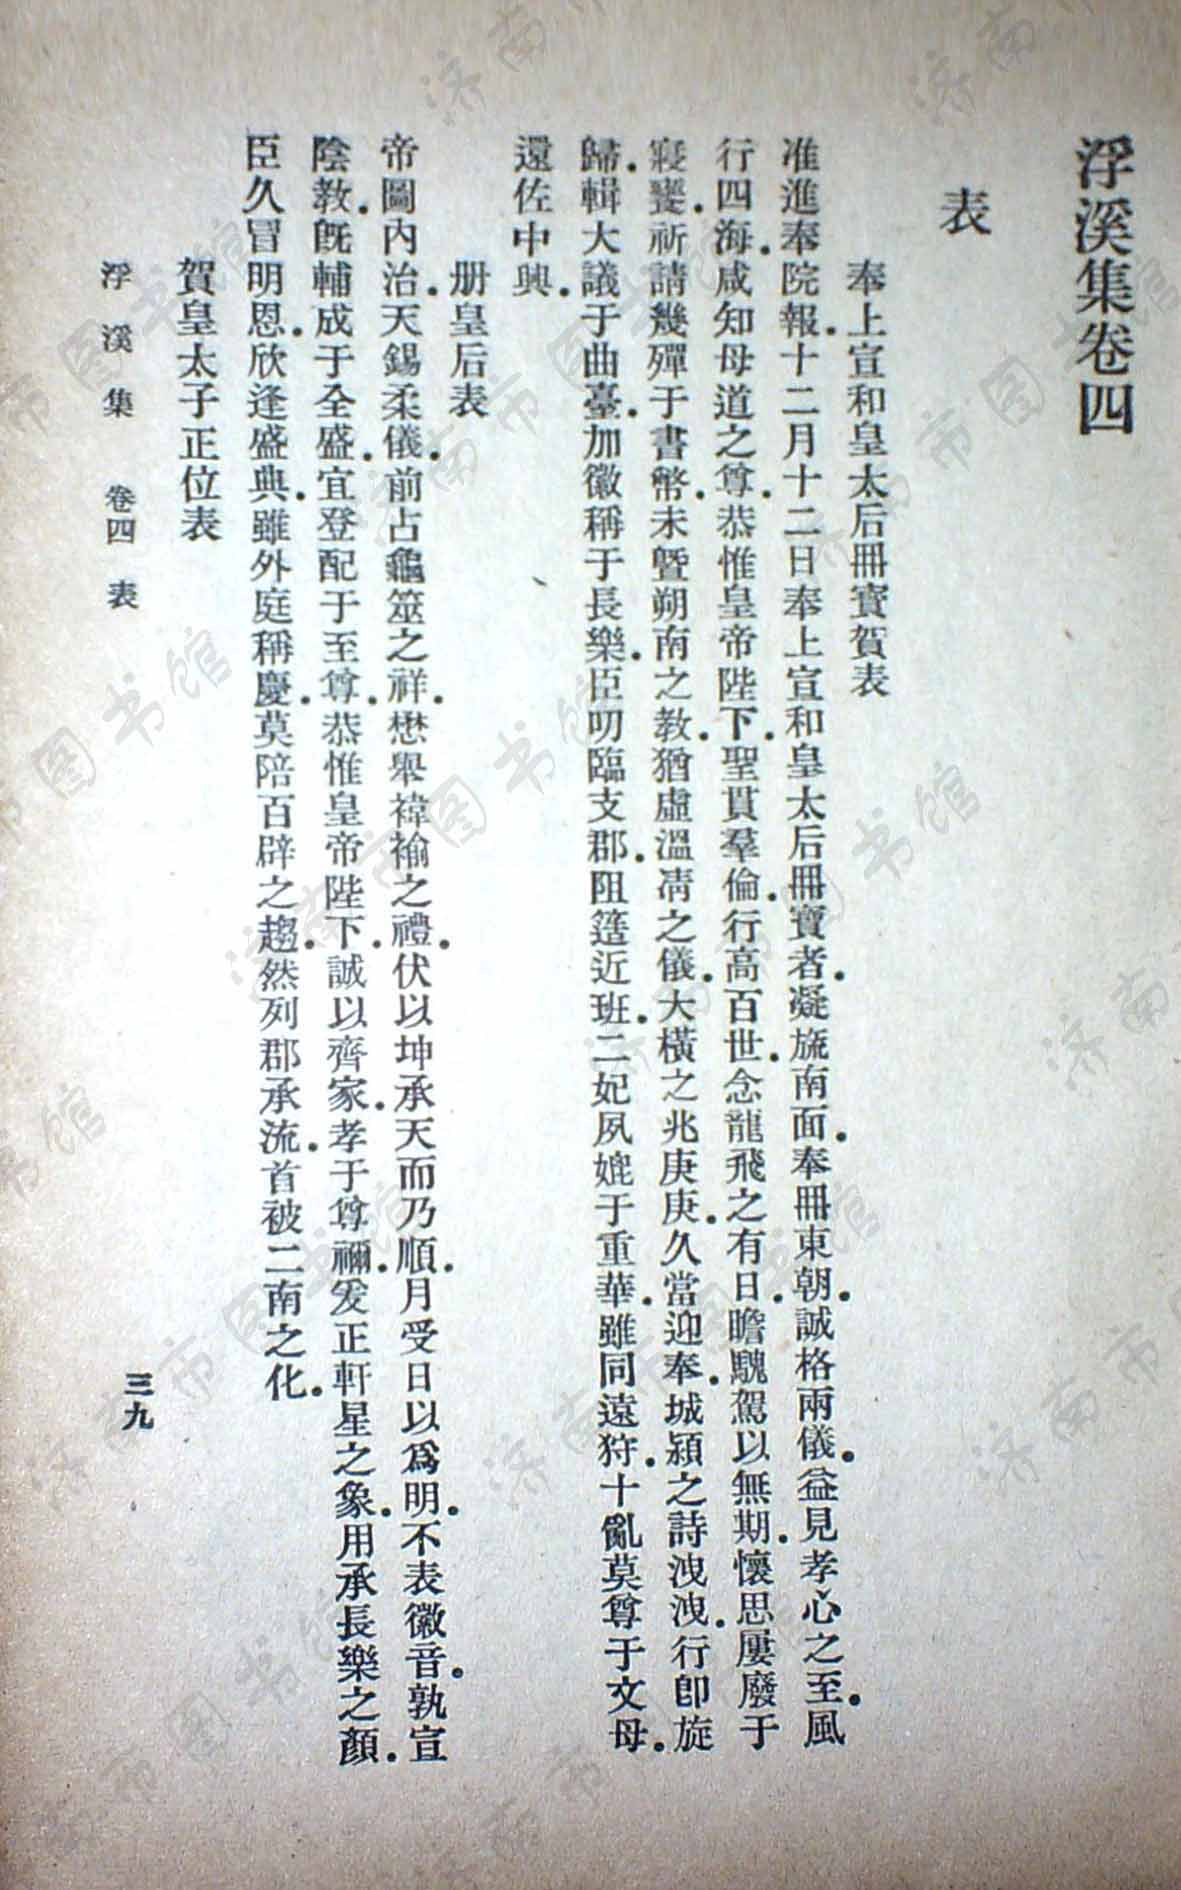 浮溪集卷四
表
奉上宣和皇太后冊寶賀表
准進奉院報．十二月十二日奉上宣和皇太后冊寶者．凝旒南面．奉冊東朝．誠格兩儀．益見孝心之至．風
行四海．咸知母道之尊．恭惟皇帝陛下．聖貫羣倫．行高百世．念龍飛之有日．瞻騩駕以無期．懷思屢廢于
寢饔．祈請幾殫于書幣．未暨朔南之教．猶虛溫凊之儀．大橫之兆庚庚．久當迎奉．城潁之詩洩洩．行卽旋
歸．輯大議于曲臺．加徽稱于長樂．臣叨臨支郡．阻簉近班．二妃夙媲于重華．雖同遠狩．十亂莫尊于文母．
還佐中興．
册皇后表
帝圖內治．天錫柔儀．前占龜筮之祥．懋舉褘褕之禮．伏以坤承天而乃順．月受日以爲明．不表徽音．孰宣
陰教．旣輔成于全盛．宜登配于至尊．恭惟皇帝陛下．誠以齊家．孝于尊禰．爰正軒星之象．用承長樂之顏．
臣久冒明恩．欣逢盛典．雖外庭稱慶．莫陪百辟之趨．然列郡承流．首被二南之化．
賀皇太子正位表
浮溪集 卷四 表
三九
济南市图书馆